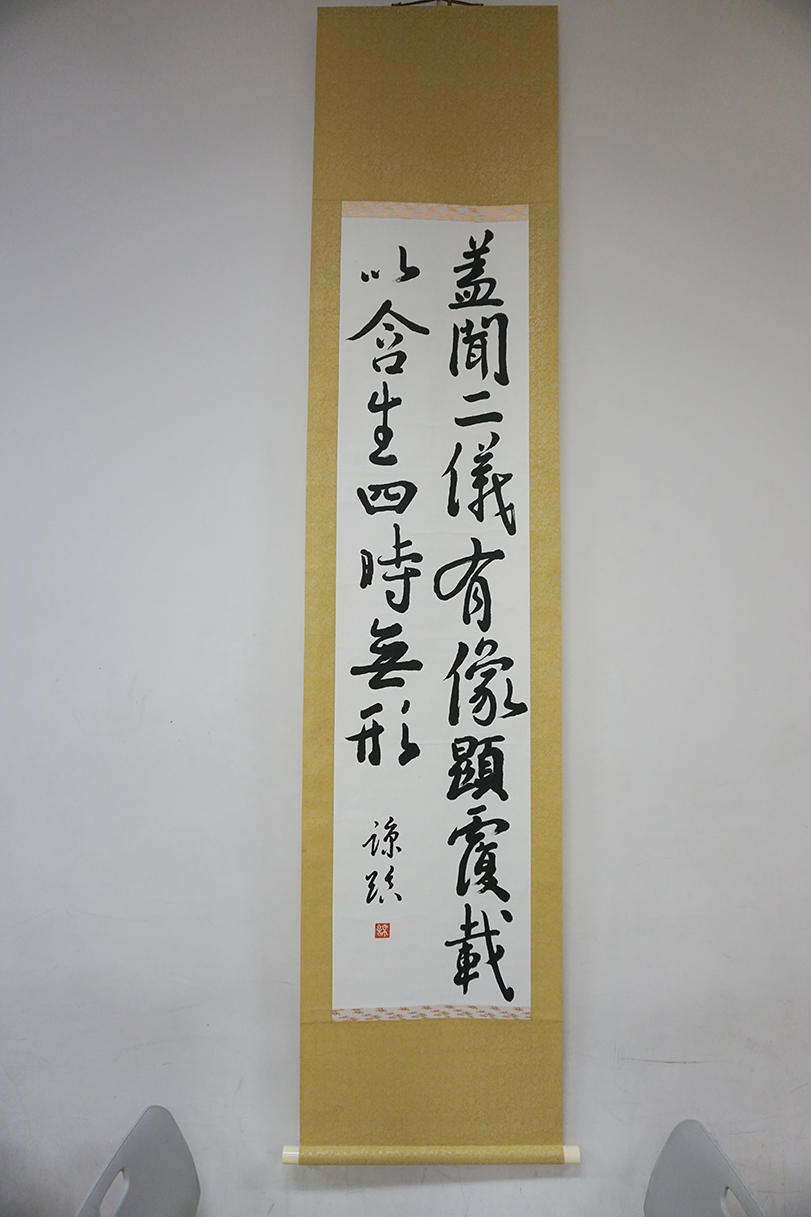 盖聞二儀有像顯覆載
以含生四時無形